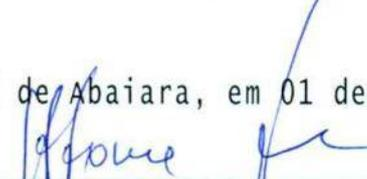 de Abaiara, em 01 de